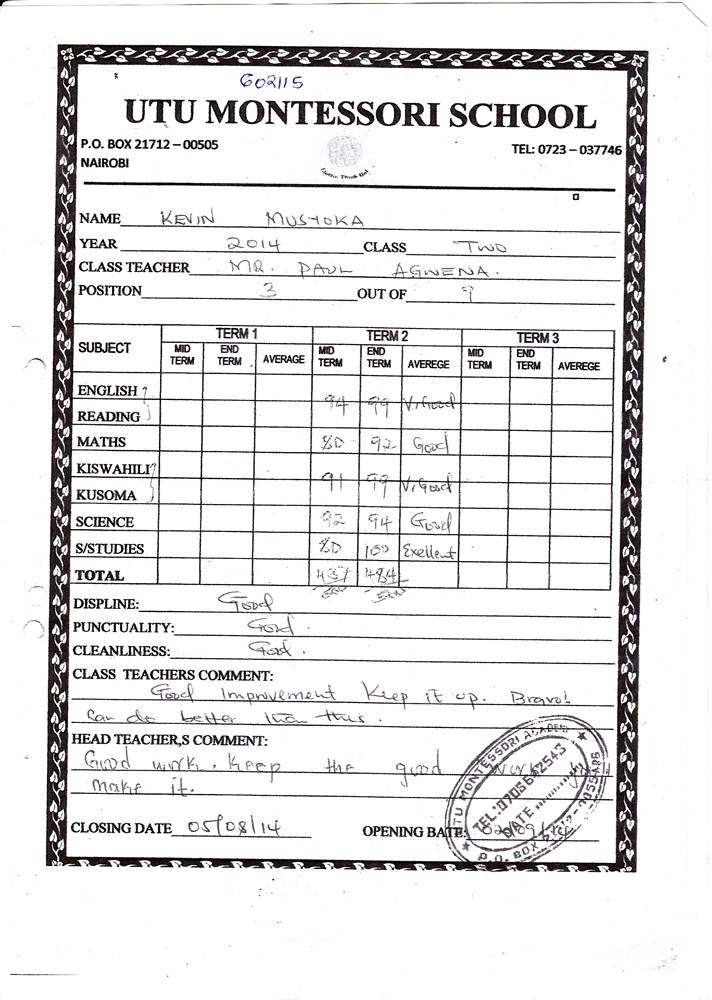 602115
UTU MONTESSORI SCHOOL
P.O. BOX 21712 – 00505
TEL: 0723 – 037746
NAIROBI
NAME KEVIN MUSYOKA
YEAR 2014 CLASS TWO
CLASS TEACHER MR. PAUL AGWENA.
POSITION 3 OUT OF 9
SUBJECT TERM 1 TERM 2 TERM 3
MID TERM END TERM AVERAGE MID TERM END TERM AVEREGE MID TERM END TERM AVEREGE
ENGLISH
94 99 V.Good
READING
MATHS 80 92 Good
KISWAHILI
91 99 V.Good
KUSOMA
SCIENCE 92 94 Good
S/STUDIES 80 100 Exellent
TOTAL 437 484
500 500
DISPLINE: Good
PUNCTUALITY: Good.
CLEANLINESS: Good.
CLASS TEACHERS COMMENT:
Good Improvement Keep it up. Bravo!
Can do better than this.
HEAD TEACHER,S COMMENT:
Good work. Keep the good work
make it.
CLOSING DATE 05/08/14 OPENING DATE: 02/09/14
UTU MONTESSORI ACADEMY
TEL: 0703642543
DATE
P.O. BOX